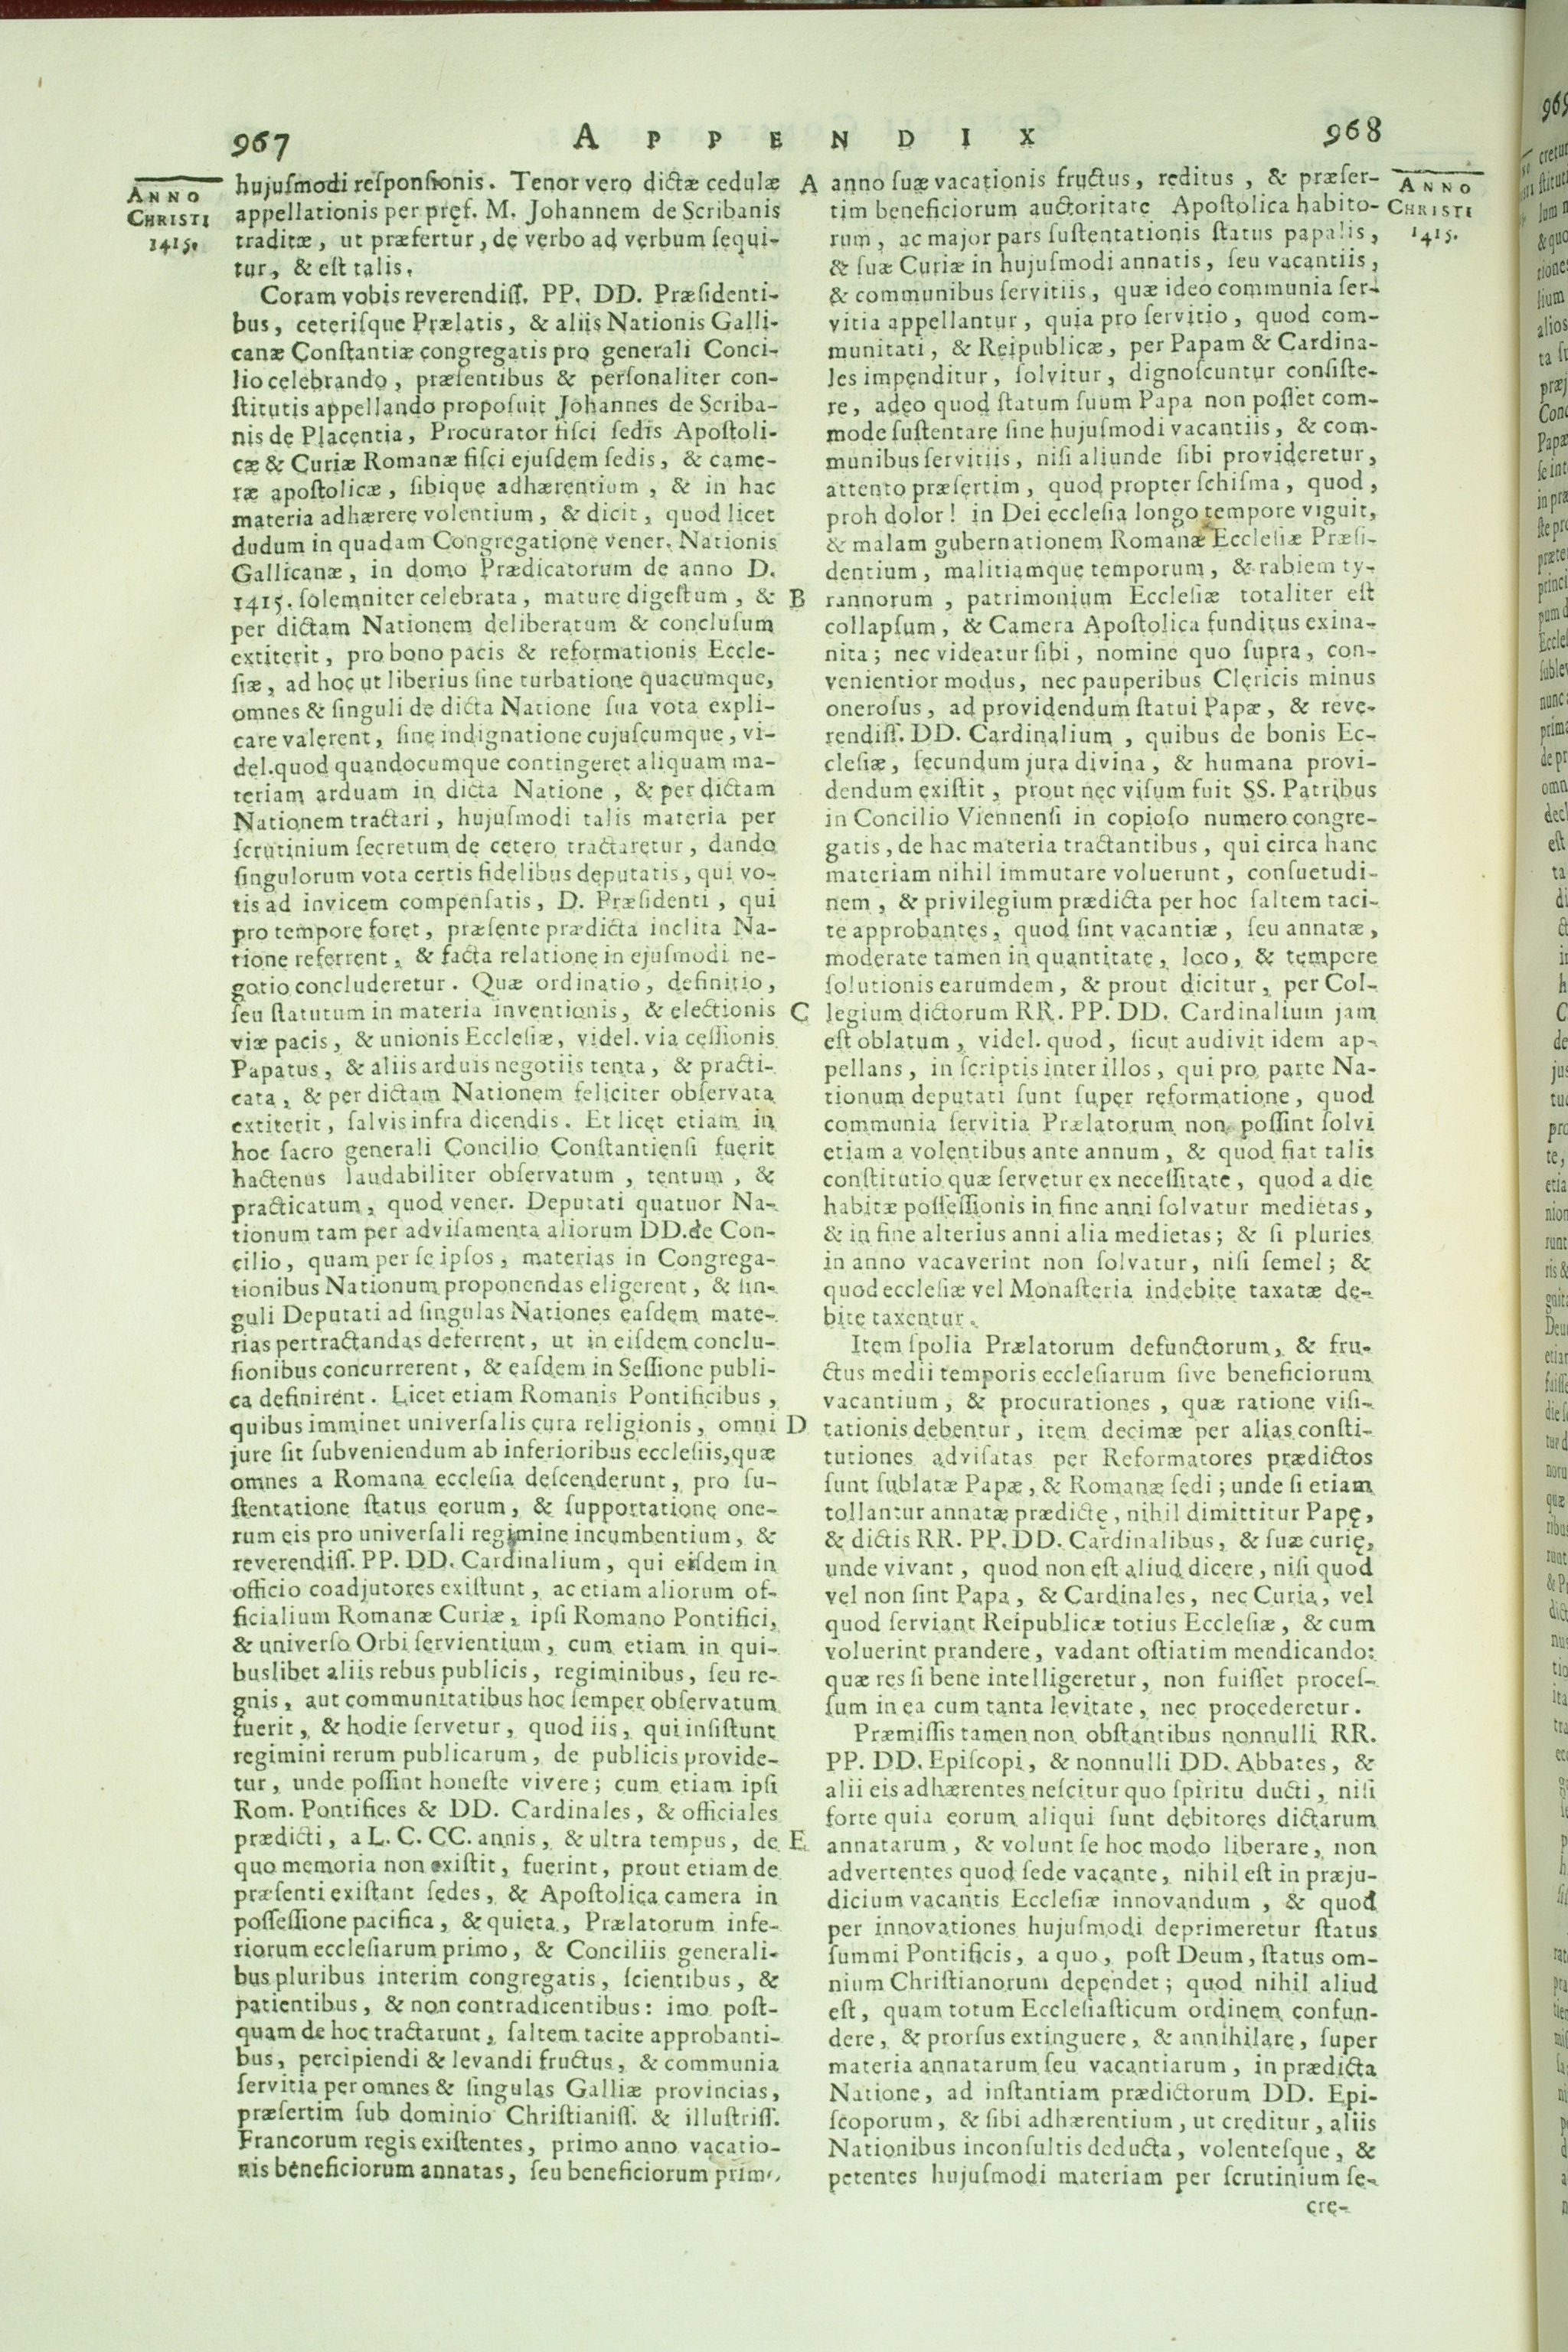 967
APPENDIX
968
ANNO
CHRISTI
1415.
hujuſmodi reſponſionis. Tenor vero dictæ cedulæ
appellationis per pręf. M. Johannem de Scribanis
traditæ, ut præfertur, de verbo ad verbum ſequi-
tur, & eſt talis.
Coram vobis reverendiſſ. PP. DD. Præſidenti-
bus, ceteriſque Prælatis, & aliis Nationis Galli-
canæ Conſtantiæ congregatis pro generali Conci-
lio celebrando, præſentibus & perſonaliter con-
ſtitutis appellando propoſuit Johannes de Scriba-
nis de Placentia, Procurator fiſci ſedis Apoſtoli-
cæ & Curiæ Romanæ fiſci ejuſdem ſedis, & came-
ræ apoſtolicæ, ſibique adhærentium, & in hac
materia adhærere volentium, & dicit, quod licet
dudum in quadam Congregatione vener. Nationis
Gallicanæ, in domo Prædicatorum de anno D.
1415. ſolemniter celebrata, mature digeſtum, &
per dictam Nationem deliberatum & concluſum
extiterit, pro bono pacis & reformationis Eccle-
ſiæ, ad hoc ut liberius ſine turbatione quacumque,
omnes & ſinguli de dicta Natione ſua vota expli-
care valerent, ſine indignatione cujuſcumque, vi-
del. quod quandocumque contingeret aliquam ma-
teriam arduam in dicta Natione, & per dictam
Nationem tractari, hujuſmodi talis materia per
ſcrutinium ſecretum de cetero tractaretur, dando
ſingulorum vota certis fidelibus deputatis, qui vo-
tis ad invicem compenſatis, D. Præſidenti, qui
pro tempore foret, præſente prædicta inclita Na-
tione referrent, & facta relatione in ejuſmodi ne-
gotio concluderetur. Quæ ordinatio, definitio,
ſeu ſtatutum in materia inventionis, & electionis
viæ pacis, & unionis Eccleſiæ, videl. via ceſſionis
Papatus, & aliis arduis negotiis tenta, & practi-
cata, & per dictam Nationem feliciter obſervata
extiterit, ſalvis infra dicendis. Et licet etiam in
hoc ſacro generali Concilio Conſtantienſi fuerit
hactenus laudabiliter obſervatum, tentum, &
practicatum, quod vener. Deputati quatuor Na-
tionum tam per adviſamenta aliorum DD. de Con-
cilio, quam per ſe ipſos, materias in Congrega-
tionibus Nationum proponendas eligerent, & ſin-
guli Deputati ad ſingulas Nationes eaſdem mate-
rias pertractandas deferrent, ut in eiſdem conclu-
ſionibus concurrerent, & eaſdem in Seſſione publi-
ca definirent. Licet etiam Romanis Pontificibus,
quibus imminet univerſalis cura religionis, omni
jure ſit ſubveniendum ab inferioribus eccleſiis, quæ
omnes a Romana eccleſia deſcenderunt, pro ſu-
ſtentatione ſtatus eorum, & ſupportatione one-
rum eis pro univerſali regimine incumbentium, &
reverendiſſ. PP. DD. Cardinalium, qui eiſdem in
officio coadjutores exiſtunt, ac etiam aliorum of-
ficialium Romanæ Curiæ, ipſi Romano Pontifici,
& univerſo Orbi ſervientium, cum etiam in qui-
buslibet aliis rebus publicis, regiminibus, ſeu re-
gnis, aut communitatibus hoc ſemper obſervatum
fuerit, & hodie ſervetur, quod iis, qui inſiſtunt
regimini rerum publicarum, de publicis provide-
tur, unde poſſint honeſte vivere; cum etiam ipſi
Rom. Pontifices & DD. Cardinales, & officiales
prædicti, a L. C. CC. annis, & ultra tempus, de
quo memoria non exiſtit, fuerint, prout etiam de
præſenti exiſtant ſedes, & Apoſtolica camera in
poſſeſſione pacifica, & quieta, Prælatorum infe-
riorum eccleſiarum primo, & Conciliis generali-
bus pluribus interim congregatis, ſcientibus, &
patientibus, & non contradicentibus: imo poſt-
quam de hoc tractarunt, ſaltem tacite approbanti-
bus, percipiendi & levandi fructus, & communia
ſervitia per omnes & ſingulas Galliæ provincias,
præſertim ſub dominio Chriſtianiſſ. & illuſtriſſ.
Francorum regis exiſtentes, primo anno vacatio-
nis beneficiorum annatas, ſeu beneficiorum primo
A
B
C
D
E
anno ſuæ vacationis fructus, reditus, & præſer-
tim beneficiorum auctoritate Apoſtolica habito-
rum, ac major pars ſuſtentationis ſtatus papalis,
& ſuæ Curiæ in hujuſmodi annatis, ſeu vacantiis,
& communibus ſervitiis, quæ ideo communia ſer-
vitia appellantur, quia pro ſervitio, quod com-
munitati, & Reipublicæ, per Papam & Cardina-
les impenditur, ſolvitur, dignoſcuntur conſiſte-
re, adeo quod ſtatum ſuum Papa non poſſet com-
mode ſuſtentare ſine hujuſmodi vacantiis, & com-
munibus ſervitiis, niſi aliunde ſibi provideretur,
attento præſertim, quod propter ſchiſma, quod,
proh dolor! in Dei eccleſia longo tempore viguit,
& malam gubernationem Romanæ Eccleſiæ Præſi-
dentium, malitiamque temporum, & rabiem ty-
rannorum, patrimonium Eccleſiæ totaliter eſt
collapſum, & Camera Apoſtolica funditus exina-
nita; nec videatur ſibi, nomine quo ſupra, con-
venientior modus, nec pauperibus Clericis minus
oneroſus, ad providendum ſtatui Papæ, & reve-
rendiſſ. DD. Cardinalium, quibus de bonis Ec-
cleſiæ, ſecundum jura divina, & humana provi-
dendum exiſtit, prout nec viſum fuit SS. Patribus
in Concilio Viennenſi in copioſo numero congre-
gatis, de hac materia tractantibus, qui circa hanc
materiam nihil immutare voluerunt, conſuetudi-
nem, & privilegium prædicta per hoc ſaltem taci-
te approbantes, quod ſint vacantiæ, ſeu annatæ,
moderate tamen in quantitate, loco, & tempore
ſolutionis earumdem, & prout dicitur, per Col-
legium dictorum RR. PP. DD. Cardinalium jam
eſt oblatum, videl. quod, ſicut audivit idem ap-
pellans, in ſcriptis inter illos, qui pro parte Na-
tionum deputati ſunt ſuper reformatione, quod
communia ſervitia Prælatorum non poſſint ſolvi
etiam a volentibus ante annum, & quod fiat talis
conſtitutio quæ ſervetur ex neceſſitate, quod a die
habitæ poſſeſſionis in fine anni ſolvatur medietas,
& in fine alterius anni alia medietas; & ſi pluries
in anno vacaverint non ſolvatur, niſi ſemel; &
quod eccleſiæ vel Monaſteria indebite taxatæ de-
bite taxentur.
Item ſpolia Prælatorum defunctorum, & fru-
ctus medii temporis eccleſiarum ſive beneficiorum
vacantium, & procurationes, quæ ratione viſi-
tationis debentur, item decimæ per alias conſti-
tutiones adviſatas per Reformatores prædictos
ſunt ſublatæ Papæ, & Romanæ ſedi; unde ſi etiam
tollantur annatæ prædictę, nihil dimittitur Papę,
& dictis RR. PP. DD. Cardinalibus, & ſuæ curię,
unde vivant, quod non eſt aliud dicere, niſi quod
vel non ſint Papa, & Cardinales, nec Curia, vel
quod ſerviant Reipublicæ totius Eccleſiæ, & cum
voluerint prandere, vadant oſtiatim mendicando:
quæ res ſi bene intelligeretur, non fuiſſet proceſ-
ſum in ea cum tanta levitate, nec procederetur.
Præmiſſis tamen non obſtantibus nonnulli RR.
PP. DD. Epiſcopi, & nonnulli DD. Abbates, &
alii eis adhærentes neſcitur quo ſpiritu ducti, niſi
forte quia eorum aliqui ſunt debitores dictarum
annatarum, & volunt ſe hoc modo liberare, non
advertentes quod ſede vacante, nihil eſt in præju-
dicium vacantis Eccleſiæ innovandum, & quod
per innovationes hujuſmodi deprimeretur ſtatus
ſummi Pontificis, a quo, poſt Deum, ſtatus om-
nium Chriſtianorum dependet; quod nihil aliud
eſt, quam totum Eccleſiaſticum ordinem confun-
dere, & prorſus extinguere, & annihilare, ſuper
materia annatarum ſeu vacantiarum, in prædicta
Natione, ad inſtantiam prædictorum DD. Epi-
ſcoporum, & ſibi adhærentium, ut creditur, aliis
Nationibus inconſultis deducta, volenteſque, &
petentes hujuſmodi materiam per ſcrutinium ſe-
cre-
ANNO
CHRISTI
1415.